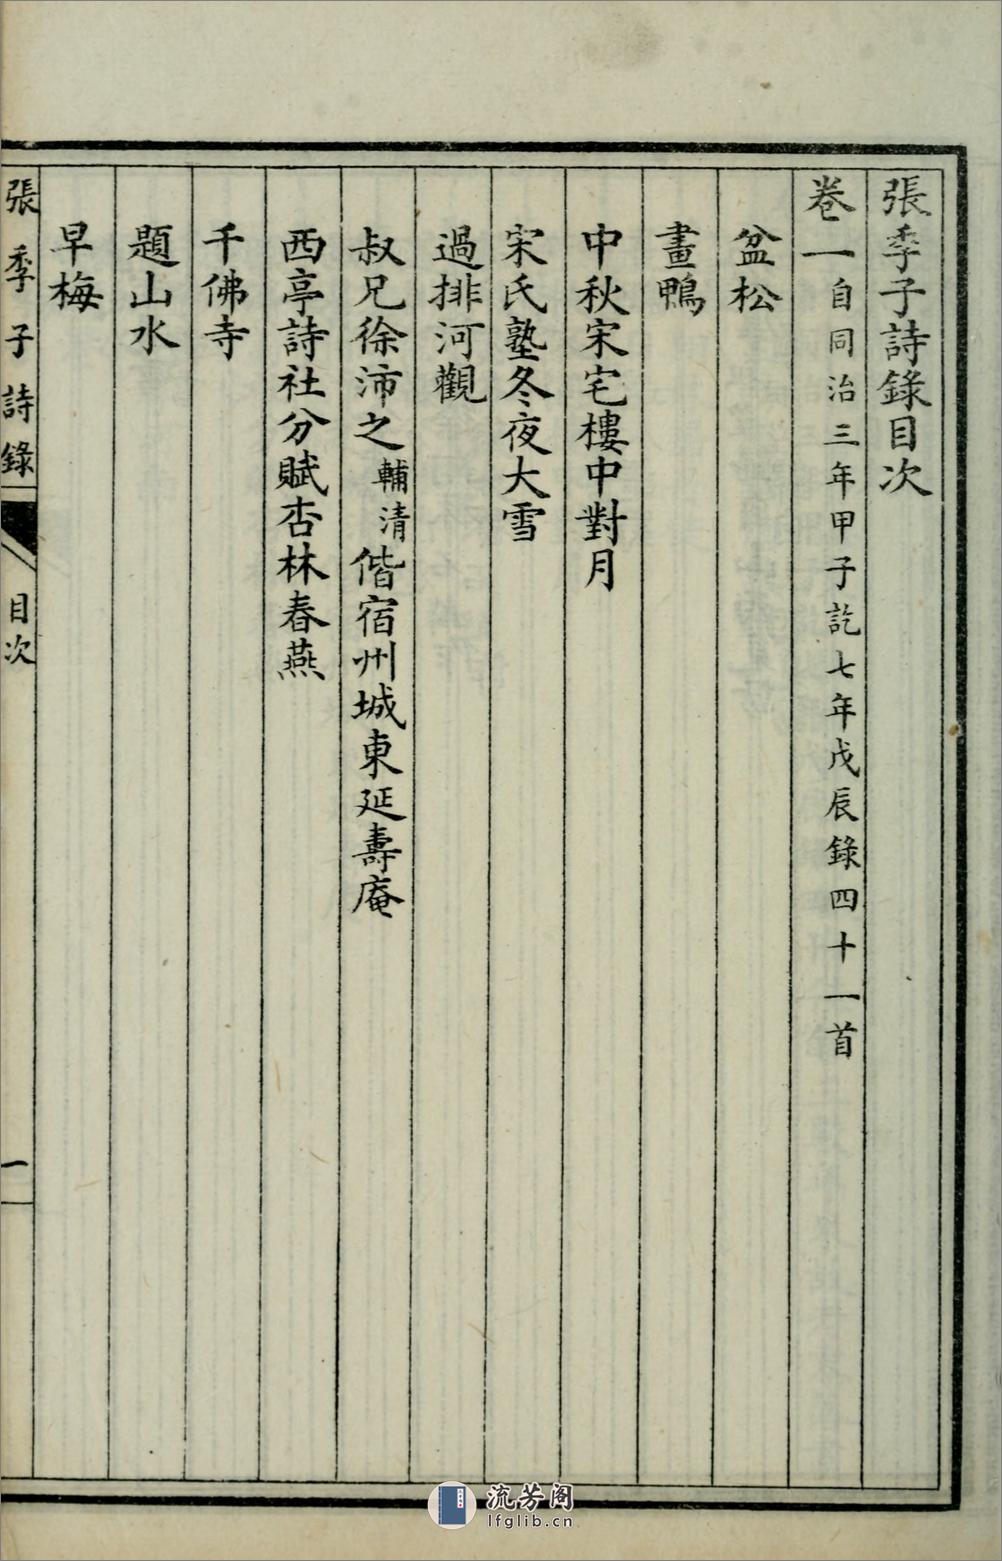 張季子詩錄目次
卷一自同治三年甲子訖七年戊辰錄四十一首
盆松
畫鴨
中秋宋宅樓中對月
宋氏塾冬夜大雪
過排河觀
叔兄徐沛之輔清偕宿州城東延壽庵
西亭詩社分賦杏林春燕
千佛寺
題山水
早梅
張季子詩錄
目次
一
流芳阁
lfglib.cn